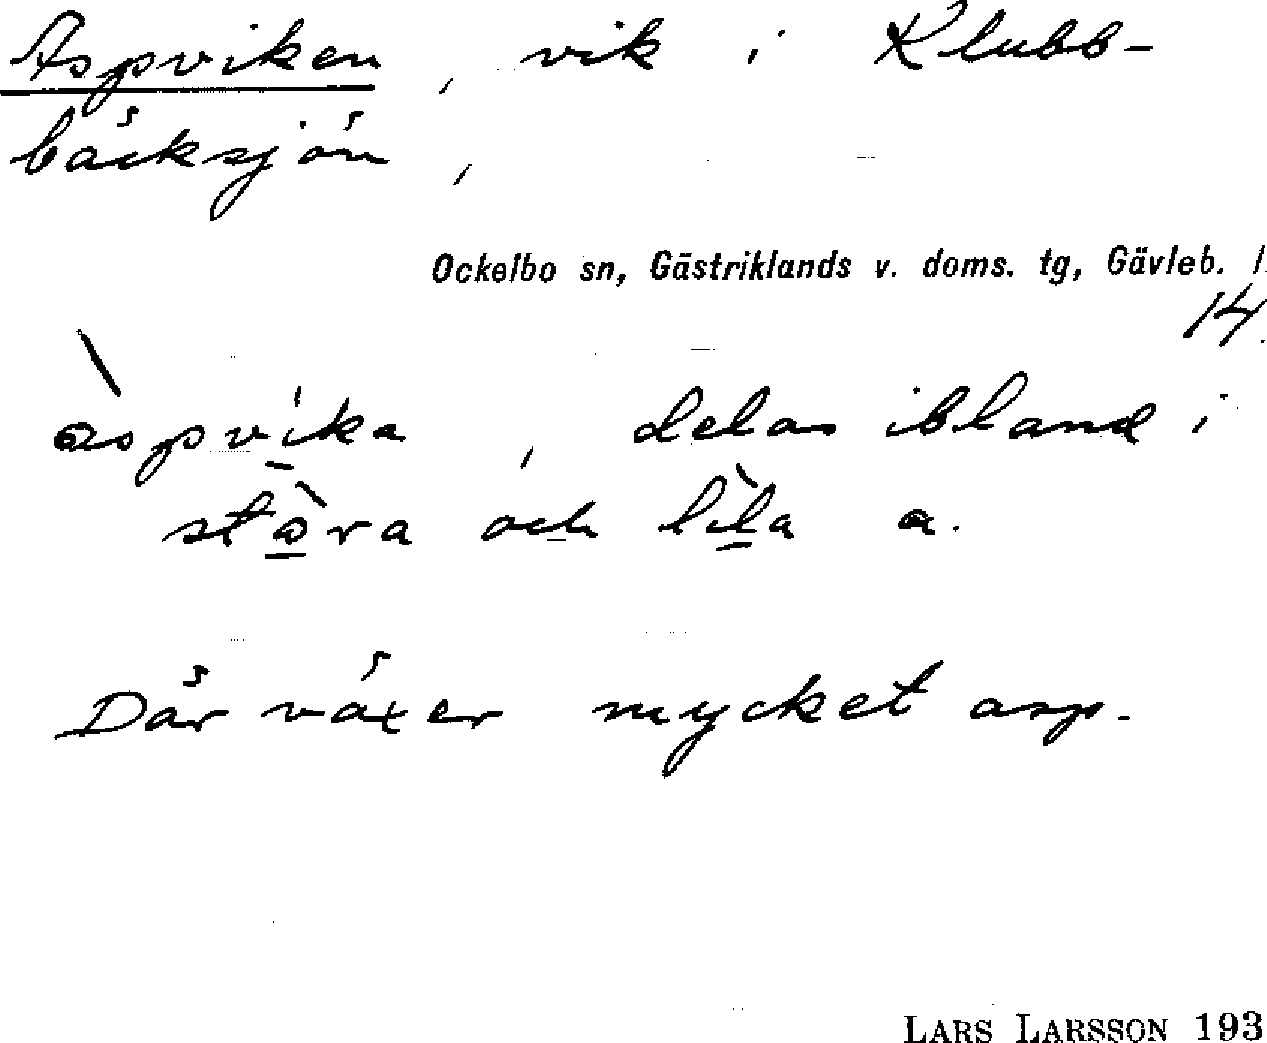 Aspviken, vik i Klubb-
bäcksjön,
Ockelbo sn, Gästriklands v. doms. tg, Gävleb. l
14.
àspvika, delas ibland i
stòra och lìla a.
Där växer mycket asp.
LARS LARSSON 193